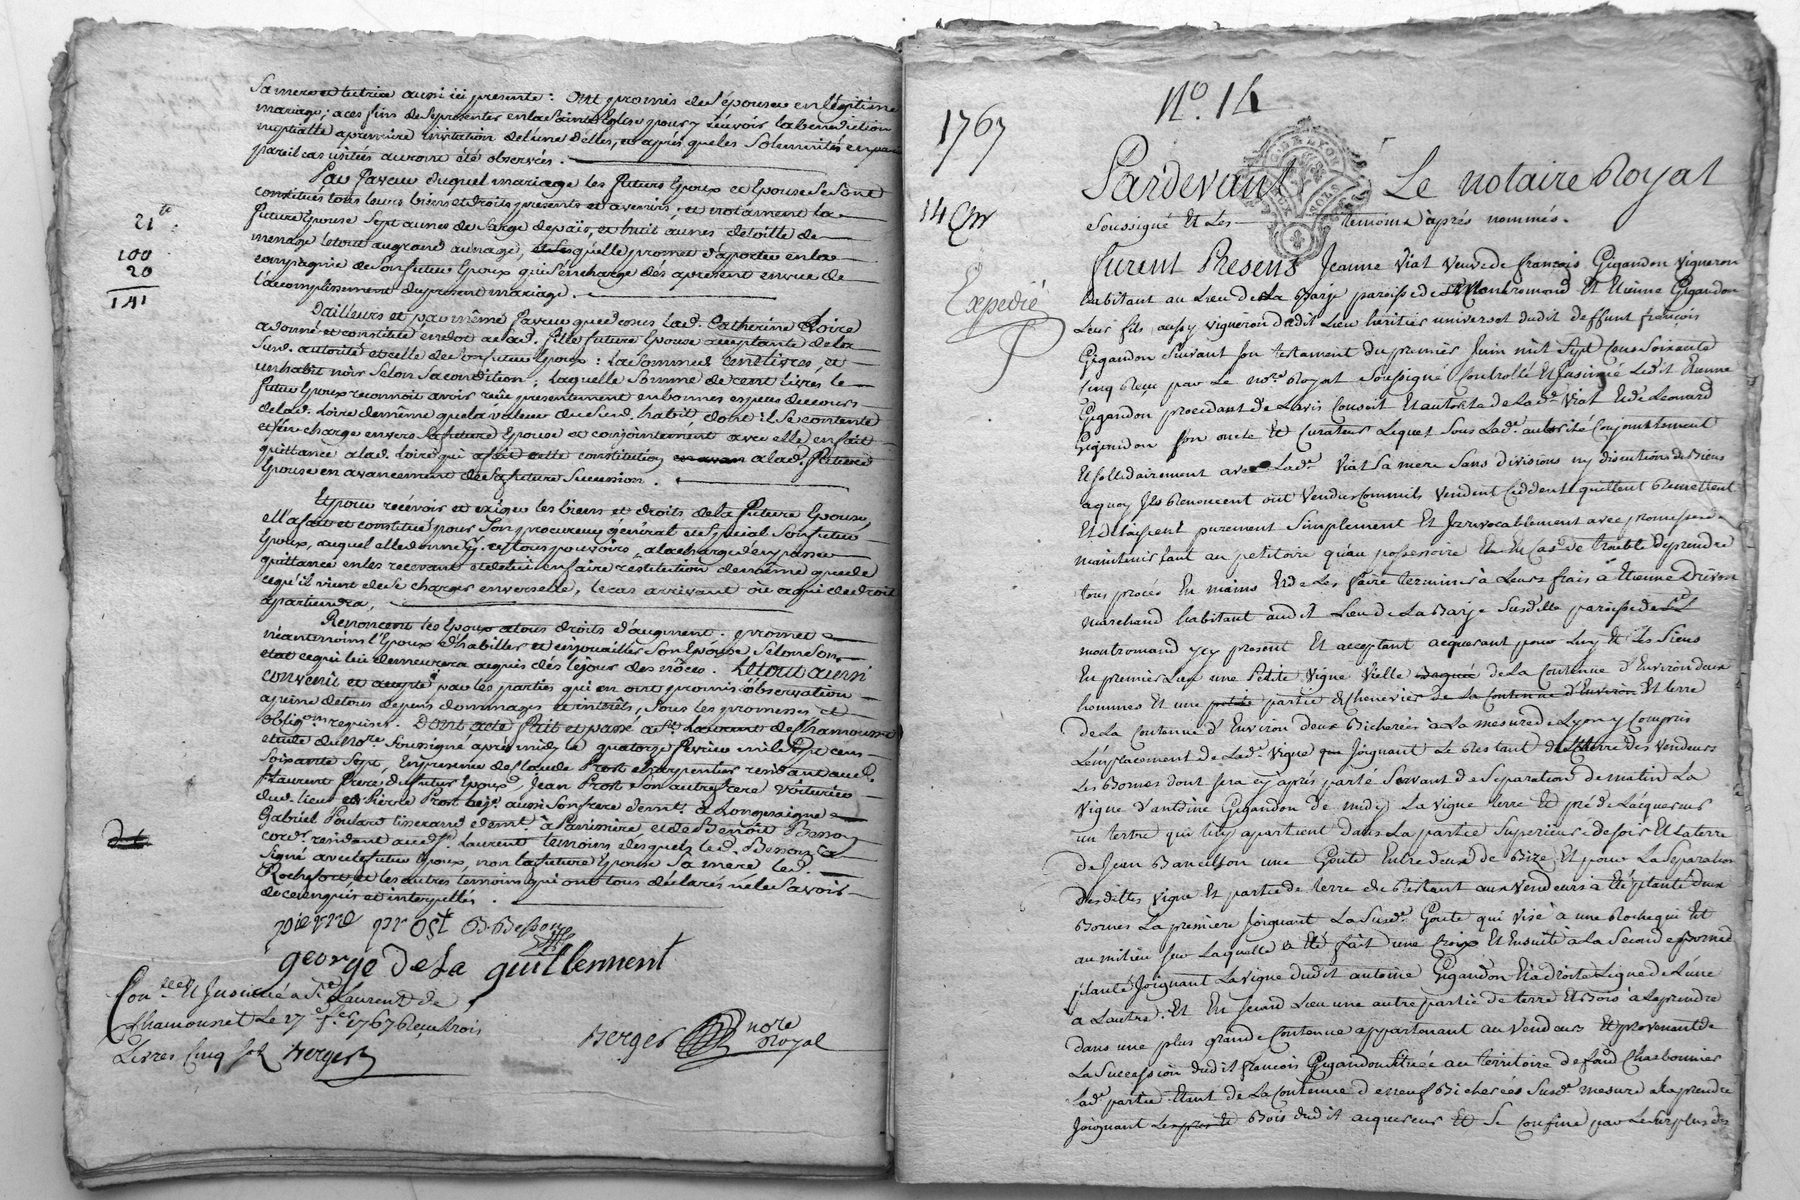 Sa mere et tutrice aussi ici presente : Ont promis de s'épouser en légitime
mariage ; a ces fins de se presenter en la Sainte Eglise pour y recevoir la benediction
nuptialle a premiere invitation de l'une d'elles, et après que les Solemnités en
pareil cas usitées auront été observées.
Par faveur duquel mariage les futurs Epoux et Epouse se sont
constitués tous leurs biens et droits presents et avenirs ; et notament la
future Epouse Sept aunes de Sarge de païs, et huit aunes de toille de
menage le tout au grand aunage, qu'elle promet d'apporter en la
compagnie de son futur Epoux qui s'en charge dès apresent en vue de
l'accomplissement du present mariage.
21 tt
100
20
141
D'ailleurs et par même faveur que dessus lad. Catherine Loire
a donné et constitué en dot a lad. fille future Epouse acceptante de la
susd. autorité et celle de son futur Epoux : La Somme de Cent livres, et
un habit noir selon Sa condition ; laquelle Somme de cent livres le
futur Epoux reconnoit avoir reçüe presentement en bonnes especes de cours
de lad. Loire de même que la valeur du Susd. habit, dont il se contente
et s'en charge envers Sa future Epouse et conjointement avec elle en fait
quittance a lad. Loire qui a fait cette constitution a lad. future
Epouse en avancement de Sa future Succession.
Et pour recevoir et exiger les biens et droits de la future Epouse,
elle a fait et constitué pour Son procureur général et special Son futur
Epoux, auquel elle donne tous pouvoirs, a la charge d'en passer
quittance en les recevant et d'en faire restitution de même que de
ce qu'il vient de se charger envers elle, le cas arrivant où a qui de droit
apartiendra,
Renoncent les Epoux a tous droits d'augment ; promet
néantmoins l'Epoux d'habiller et enjouailler Son Epouse Selon Son
etat ce qui lui demeurera acquis dès le jour des nôces. Le tout ainsi
convenû et accepté par les parties qui en ont promis l'observation
a peine de tous depens dommages et interets, Sous les promesses et
oblig.ons requises. Dont acte fait et passé a St. Laurent de Chamousset
etude du No.re Soussigné après midy le quatorze fevrier mil sept cent
soixante Sept, En presence de Claude Prost charpentier residant aud.
St Laurent frere du futur Epoux, Jean Prost Son autre frere voiturier
dud. lieu, Pierre Prost aussi Son frere demt. a Longesaigne
Gabriel Poulard tisserand demt. à Panissiere, et de Benoit Besson
cord.r residant aud. St. Laurent temoins desquels led. Besson a
Signé avec le futur Epoux, non la future Epouse Sa mere led.
Rochefort et les autres temoins qui ont tous déclarés ne le Savoir
de ce enquis et interpellés.
pierre prost B. Besson
george de la guillerment
Con.lé et Insinué a St Laurent de
Chamousset Le 17 f.er 1767 Reçu trois
Livres Cinq sol Berger
Berger no.re Royal
No. 14
1767
14 Expedié
Pardevant Le Notaire Royal
Soussigné Et Les temoins après nommés.
Furent Presens Jeanne Viat Veuve de françois Gigandon Vigneron
habitant au Lieu de La Barje paroisse de Montromand Et Etienne Gigandon
Leur fils aussy vigneron dudit Lieu heritier universel dudit deffunt françois
Gigandon Suivant son testament du premier Juin mil Sept Cens Soixante
Cinq Reçu par Le no.re Royal Soussigné Controllé Et Insinué Ledit Etienne
Gigandon procedant de Lavis Conseil Et autorité de Lad.e Viat Et de Leonard
Gigandon son oncle Et Curateur Lequel Sous Lad.e autorité Conjointement
Et sollidairement avec Lad.e Viat Sa mere Sans division ny discution de Biens
a quoy Ils Renoncent ont Vendus Commils Vendent Ceddent quittent Remettent
Et delaissent purement Simplement Et Irrevocablement avec promesse de
maintenir tant au petitoire qu'au possessoire Et En Cas de trouble de prendre
tous procès En mains Et de Les faire terminer à Leurs frais à Etienne Drivon
marchand habitant audit Lieu de La Barje Susditte paroisse de
montromand ycy present Et acceptant acquerant pour Luy Et Les Siens
En premier Lieu une petite Vigne Vielle de La Contenue d'Environ deux
hommes Et une partie de Chenevier de La Contenue d'Environ Et terre
de La Contenue d'Environ deux Bicherées à La mesure de Lyon y Compris
Lemplacement de Lad.e Vigne Joignant Le Restant de terre des Vendeurs
Les Bornes dont sera cy après parlé Servant de Separation de matin La
Vigne d'antoine Gigandon de midy La vigne terre Et pré de Lacquereur
un tertre qui luy apartient dans La partie Superieure de soir Et La terre
de Jean Bancillon une Goute Entre deux de Bize Et pour La Separation
desdittes Vigne Et partie de terre du Restant aux Vendeurs à Eté planté deux
Bornes La première Joignant La Susd.e Goute qui Vise à une Roche qui Est
au milieu sur Laquelle à Eté fait une Croix Et Ensuitte à La Seconde Borne
plantée Joignant La vigne dudit antoine Gigandon Et à droite Ligne de Lune
à Lautre. Et En Second Lieu une autre partie de terre Et Bois à Le prendre
dans une plus grande Contenue appartenant au Vendeurs Et provenant de
La Succession dudit françois Gigandon Située au territoire de fond Charbonnier
Lad.e partie Etant de La Contenue de neuf Bicherées Susd.e mesure à La prendre
Joignant Le Bois dudit acquereur Et Se Confine par Le Surplus des